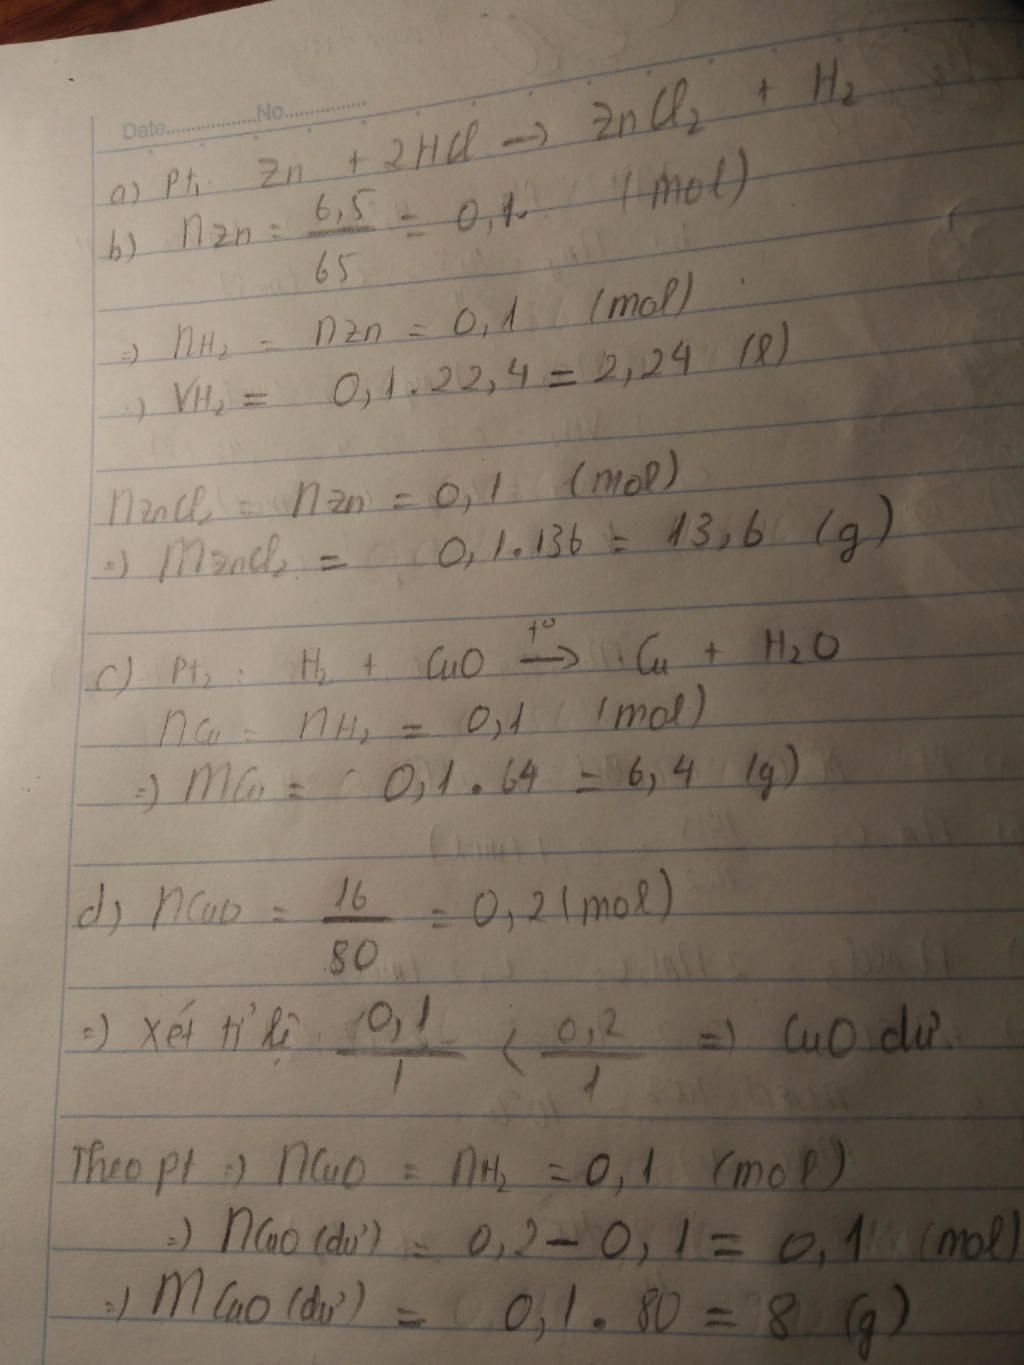 Date..................No................
a) Pt₁: Zn + 2HCl → ZnCl₂ + H₂
b) nZn = 6,5/65 = 0,1 (mol)
=) nH₂ = nZn = 0,1 (mol)
=) VH₂ = 0,1.22,4 = 2,24 (l)
nZnCl₂ = nZn = 0,1 (mol)
=) MZnCl₂ = 0,1.136 = 13,6 (g)
c) Pt₂: H₂ + CuO —t°→ Cu + H₂O
nCu = nH₂ = 0,1 (mol)
=) MCu = 0,1.64 = 6,4 (g)
d) nCuO = 16/80 = 0,2 (mol)
=) Xét tỉ lệ 0,1/1 < 0,2/1 =) CuO dư.
Theo pt =) nCuO = nH₂ = 0,1 (mol)
=) nCuO (dư) = 0,2 – 0,1 = 0,1 (mol)
=) MCuO (dư) = 0,1.80 = 8 (g)